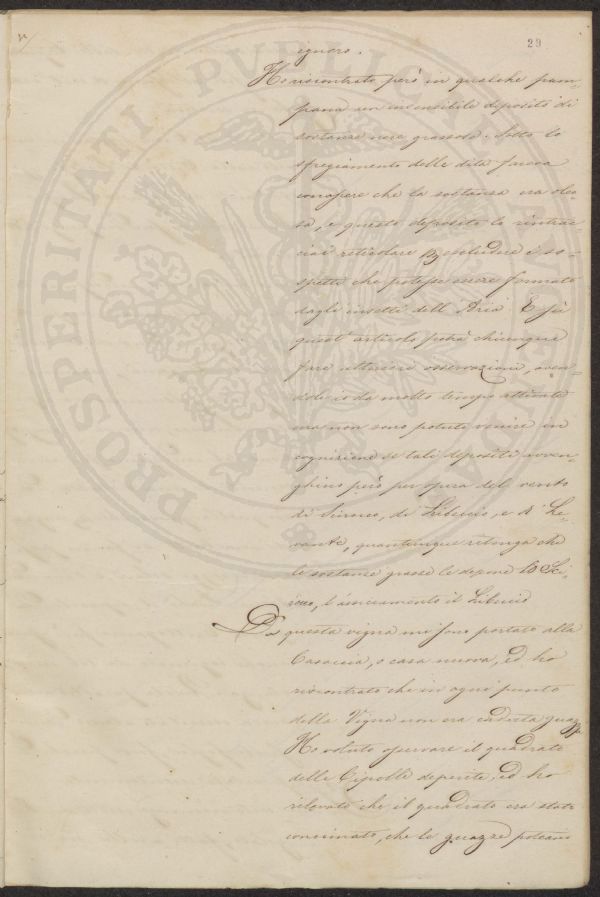 29
ignoro.
Ho riscontrato però in qualche pam=
pana un insensibile deposito di
sostanze nere grassose. Sotto lo
sfregiamento delle dita faceva
conoscere che la sostanza era oleo=
sa, e questo deposito lo rintrac=
ciai reticolare
spetti che potesse essere formato
dagli insetti dell'Aria. E su
quest'articolo potrà chiunque
fare ulteriori osservazioni, aven=
dolo io da molto tempo attivate
ma non sono potuto venire in
cognizione se tali depositi avven=
ghino però per opera del vento
di Sirocco, di Libeccio, e di Le=
vante, quantunque ritenga che
le sostanze grasse le depone lo Sci=
rocco, l'assecamento il Libeccio
Da questa vigna mi sono portato alla
Casaccia, o casa nuova, ed ho
riscontrato che in ogni punto
della Vigna non era caduta guazza
Ho voluto osservare il quadrato
delle Cipolle deperite, ed ho
rilevato che il quadrato era stato
concimato, che le guazze poteano
PROSPERITATI PVBLICAE